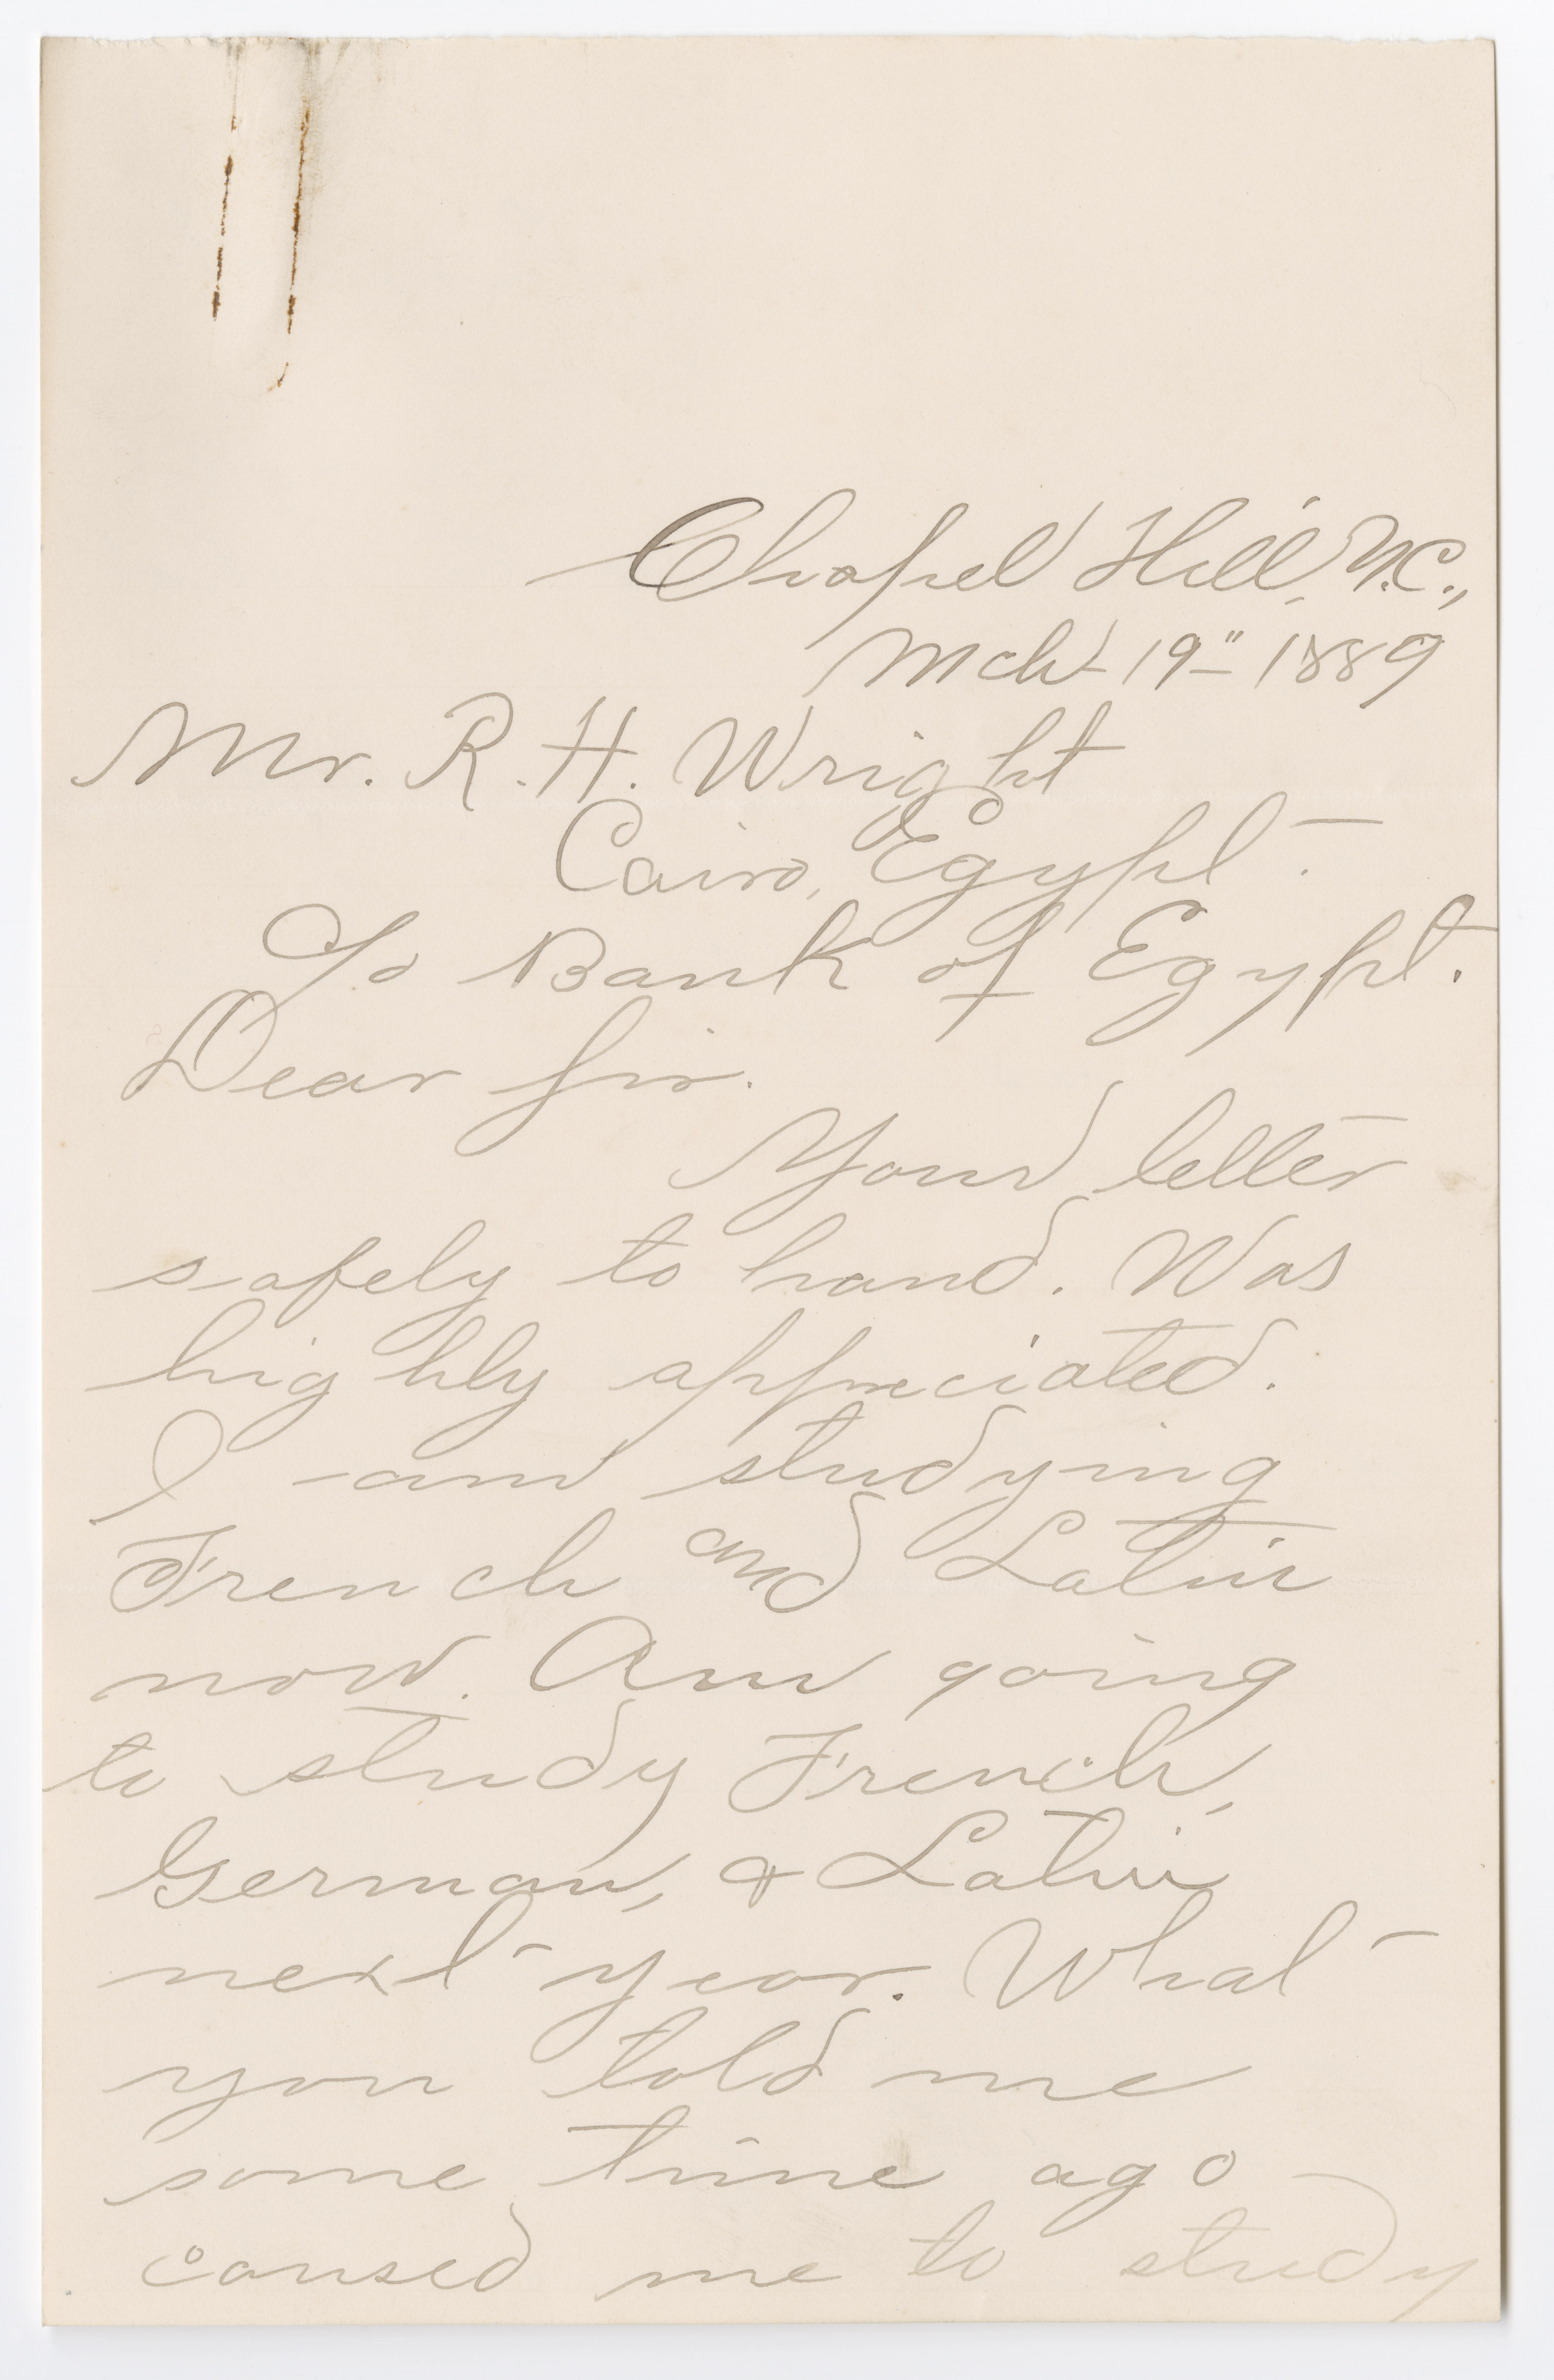 Chapel Hill, N.C.,
Mch 19" 1889
Mr. R. H. Wright
Cairo, Egypt.
To Bank of Egypt.
Dear Sir.
Your letter
safely to hand. Was
highly appreciated.
I am studying
French and Latin
now. Am going
to study French,
German, & Latin
next year. What
you told me
some time ago
caused me to study